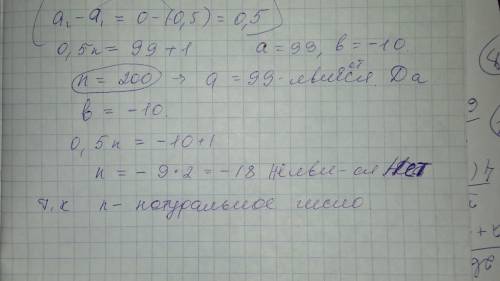 a₂-a₁ = 0-(0,5) = 0,5
0,5n = 99+1 a = 99, b = -10.
n = 200 → a = 99 - явл-ся. Да
b = -10.
0,5n = -10+1
n = -9·2 = -18 Не явл-ся Нет
т.к n - натуральное число